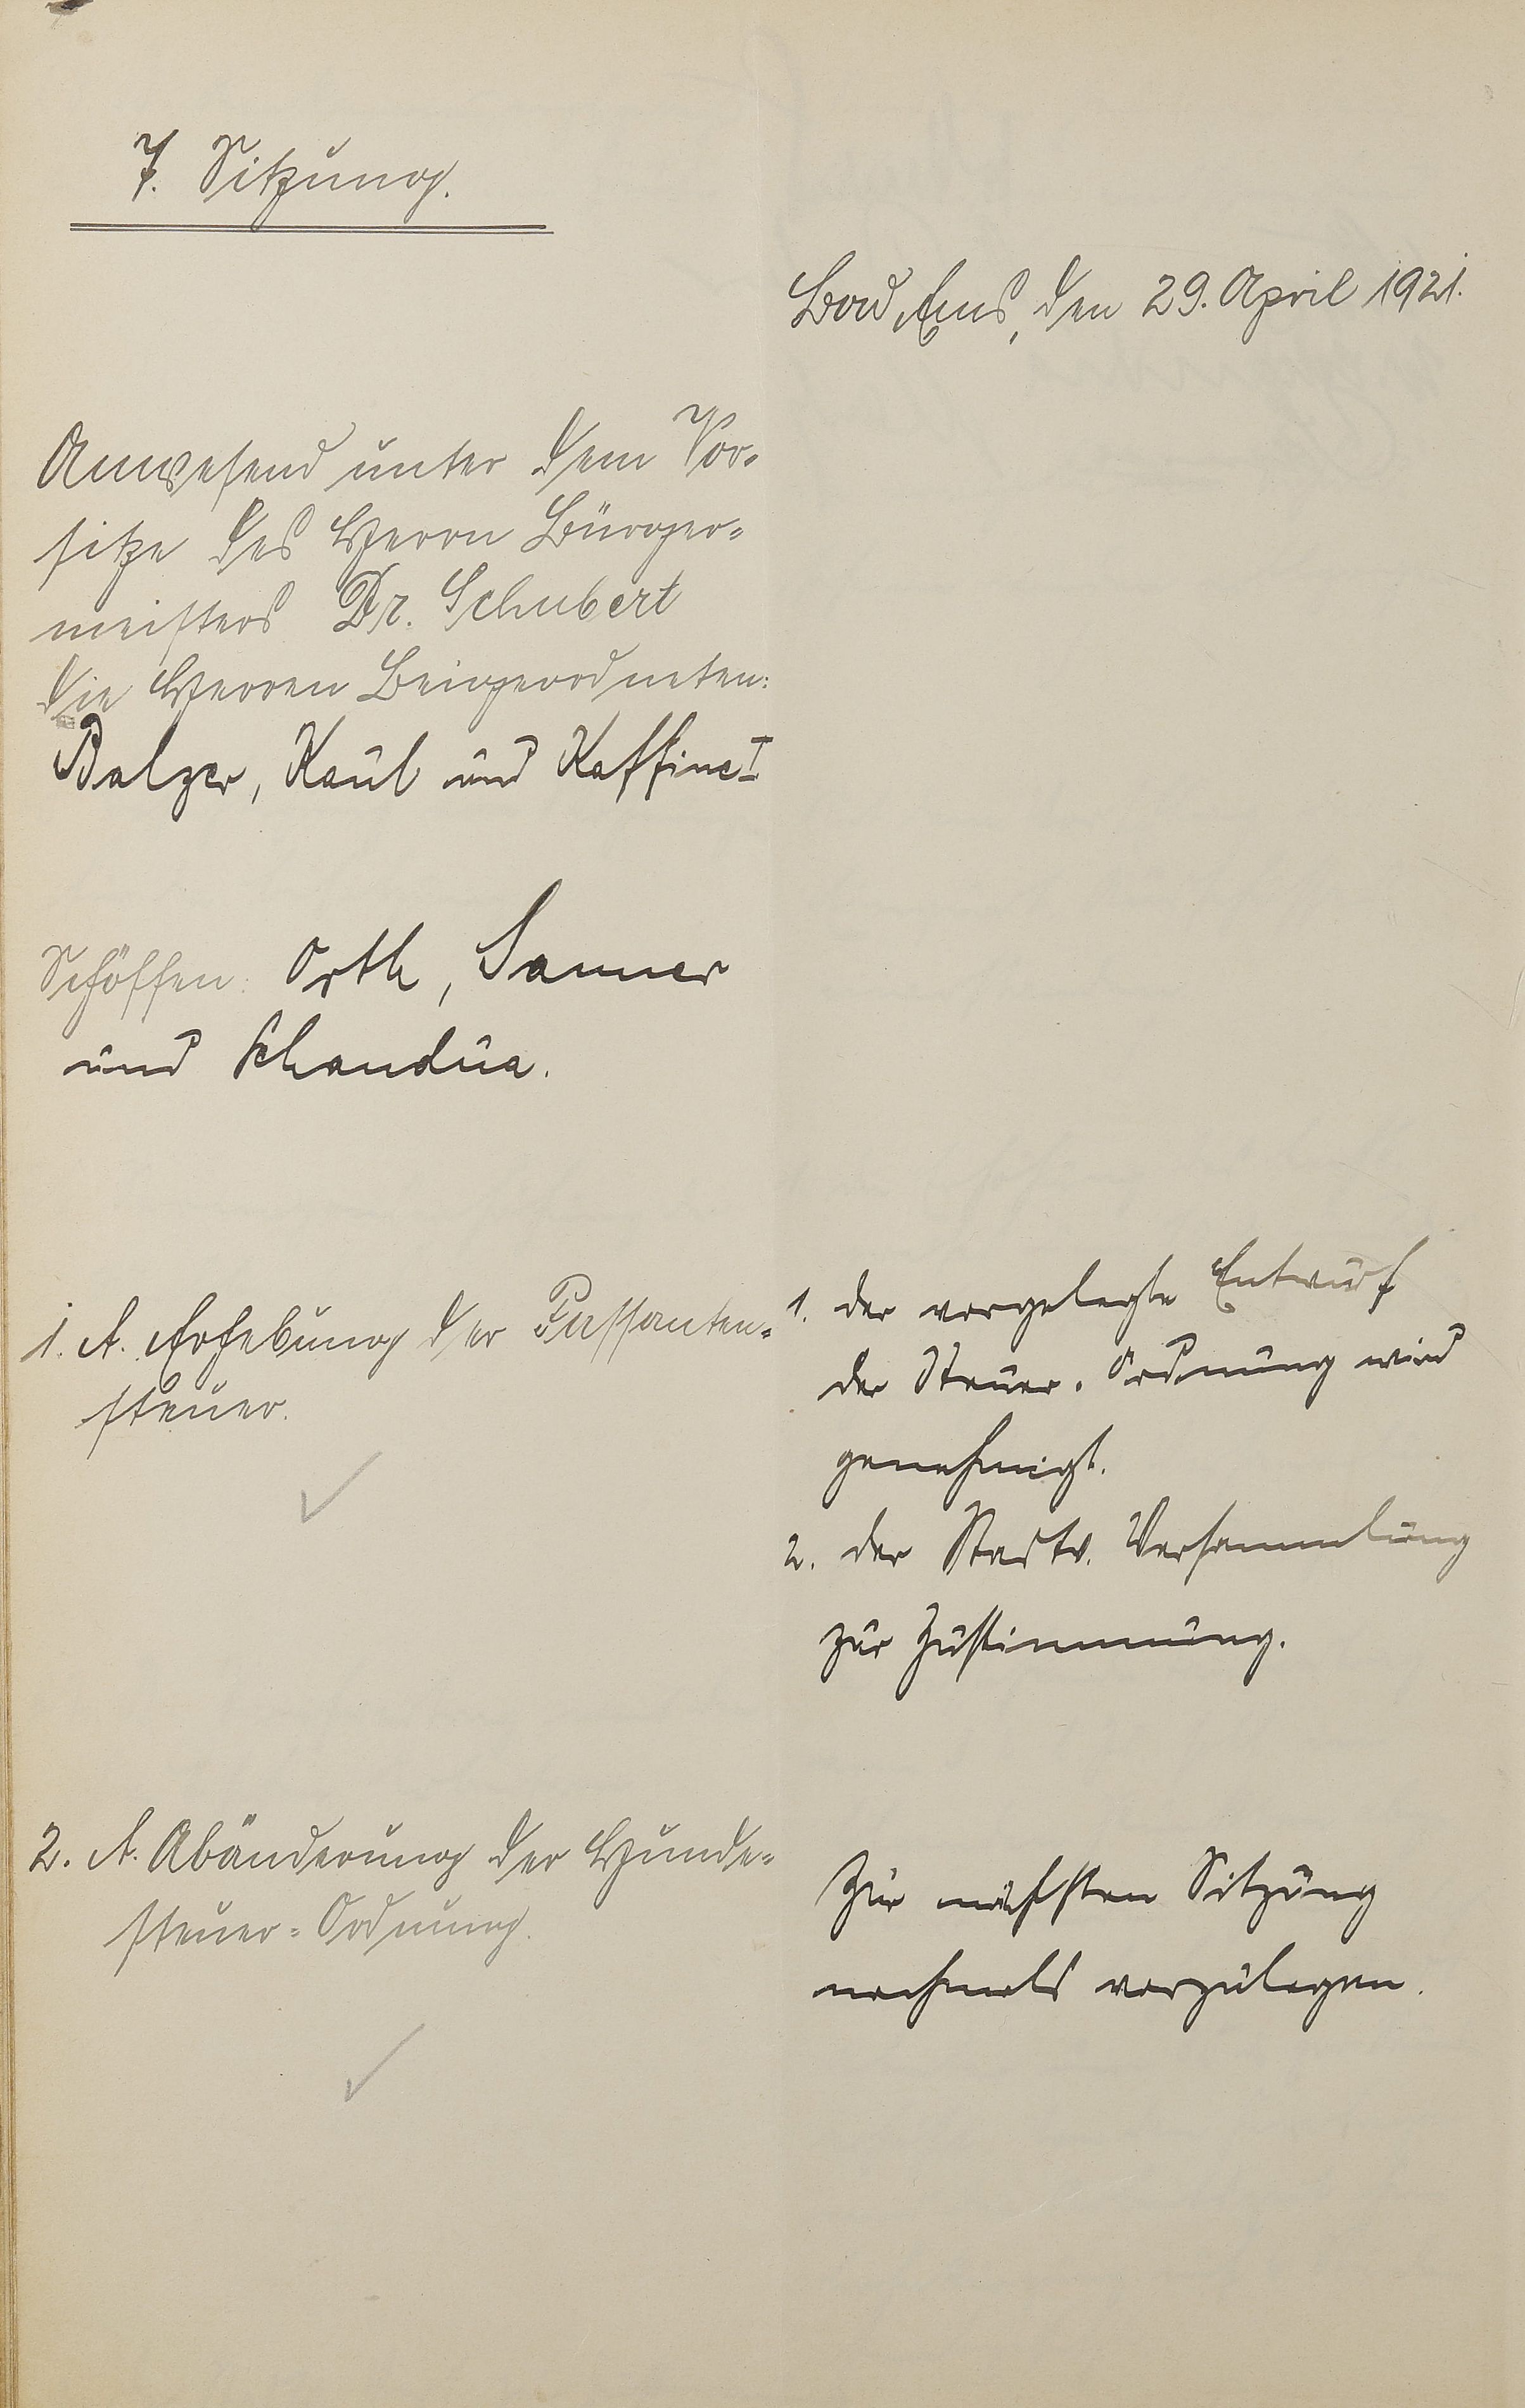 7. Sitzung.
Bad Ems, den 29. April 1921.
Anwesend unter dem Vor-
sitze des Herrn Bürger-
meisters Dr. Schubert
die Herren Beigeordneten:
Balzer, Kaul und Kaffine I
Schöffen: Orth, Sanner
und Schandua.
1. A. Erhebung der Passanten-
steuer.
1. der vorgelegte Entwurf
der Steuer-Ordnung wird
genehmigt.
2. der Stadtv. Versammlung
zur Zustimmung.
2. A. Abänderung der Hunde-
steuer-Ordnung.
Zur nächsten Sitzung
nochmals vorzulegen.